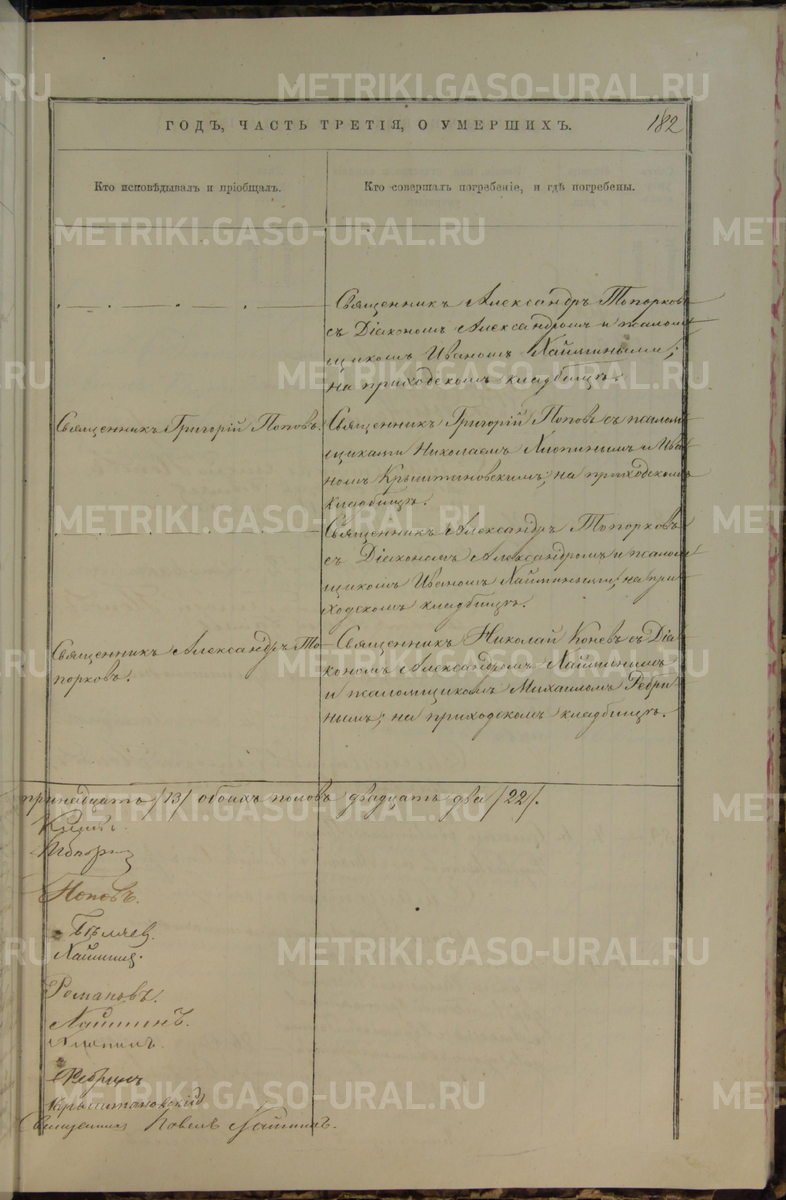 ГОДЪ, ЧАСТЬ ТРЕТІЯ, О УМЕРШИХЪ.
182
Кто исповѣдывалъ и пріобщалъ.
Кто совершалъ погребеніе, и гдѣ погребены.
Священникъ Александръ Топорковъ
съ Діакономъ Александромъ и псалом-
щикомъ Иваномъ Хаймиными;
на приходскомъ кладбищѣ.
Священникъ Григорій Поповъ.
Священникъ Григорій Поповъ съ псалом-
щиками Николаемъ Хлопинымъ и Ива-
номъ Крыштановскимъ; на приходскомъ
кладбищѣ.
Священникъ Александръ Топорковъ
съ Діакономъ Александромъ и псалом-
щикомъ Иваномъ Хаймиными; на при-
ходскомъ кладбищѣ.
Священникъ Александръ То-
порковъ.
Священникъ Николай Коневъ съ Діа-
кономъ Александромъ Хайминымъ
и псаломщикомъ Михаиломъ Ребри-
нымъ; на приходскомъ кладбищѣ.
тринадцать /13/ обоихъ половъ двадцать два /22/.
Поповъ.
Бѣляев
Хаймин
Романовъ.
Хайминъ.
Хлопинъ.
Ребринъ
Крыштановскій
Священникъ Павелъ Хайминъ.
METRIKI.GASO-URAL.RU